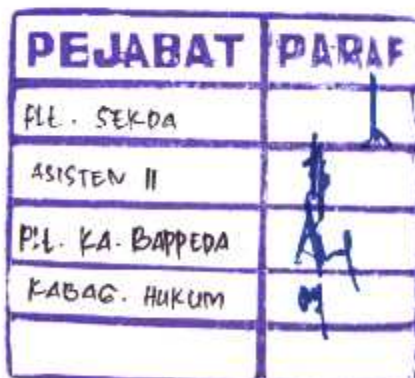 PEJABAT PARAF
PLt. SEKDA
ASISTEN II
PLt. KA. BAPPEDA
KABAG. HUKUM